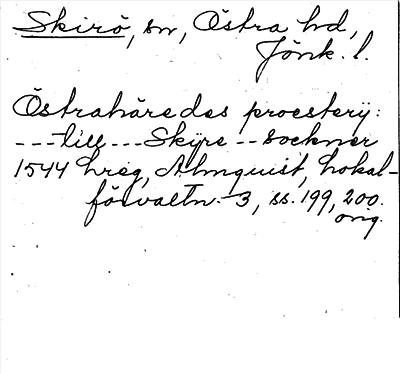 Skirö, sn, Östra hd,
Jönk. l.
Östrahäredes proestery:
---till---Skyre--sockner
1544 hreg, Almquist, Lokal-
förvaltn. 3, ss. 199, 200.
orig.